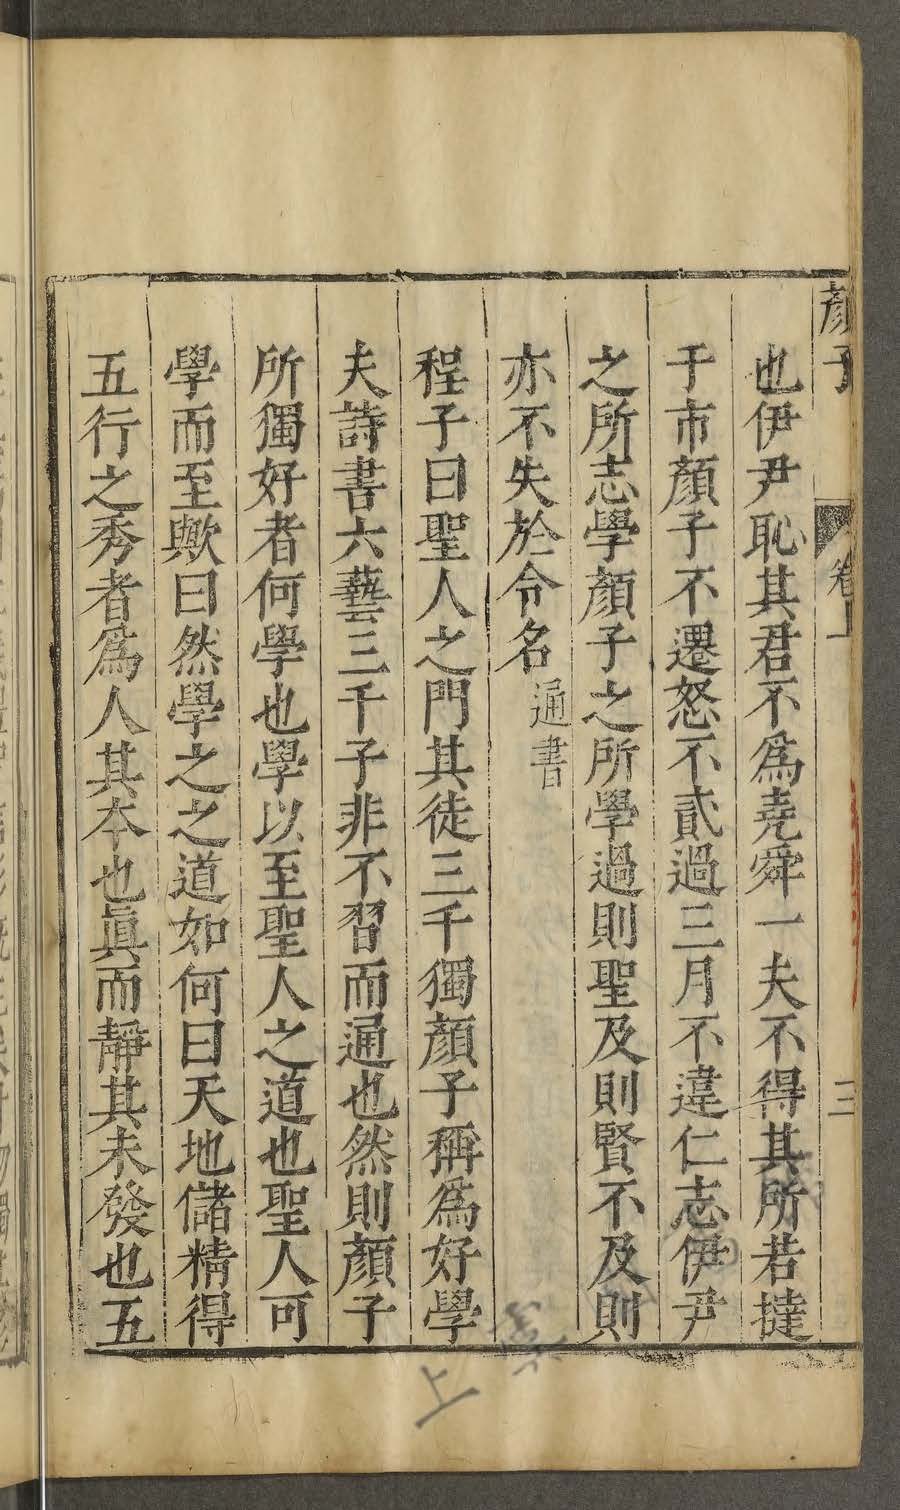 顏子 卷上 三
也伊尹恥其君不爲堯舜一夫不得其所若撻
于市顏子不遷怒不貳過三月不違仁志伊尹
之所志學顏子之所學過則聖及則賢不及則
亦不失於令名 通書
程子曰聖人之門其徒三千獨顏子稱爲好學
夫詩書六藝三千子非不習而通也然則顏子
所獨好者何學也學以至聖人之道也聖人可
學而至歟曰然學之之道如何曰天地儲精得
五行之秀者爲人其本也眞而靜其未發也五